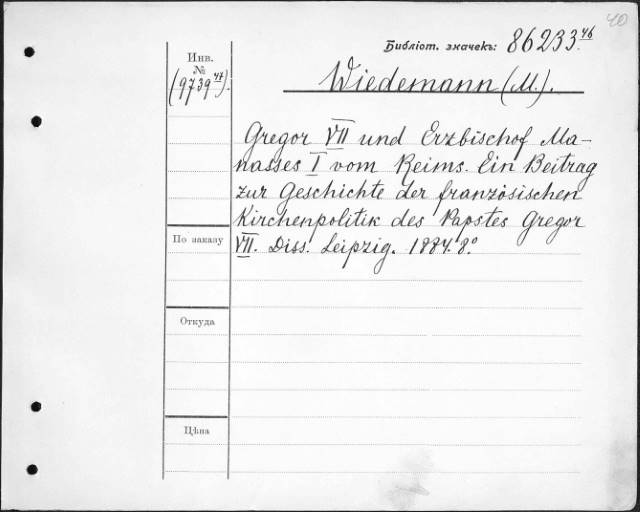 40
Библіот. значекъ: 86233.46
Инв.
№
(9739 47).
Wiedemann (M.).
Gregor VII und Erzbischof Ma-
nasses I vom Reims. Ein Beitrag
zur Geschichte der französischen
Kirchenpolitik des Papstes Gregor
VII. Diss. Leipzig. 1884. 8.°
По заказу
Откуда
Цѣна